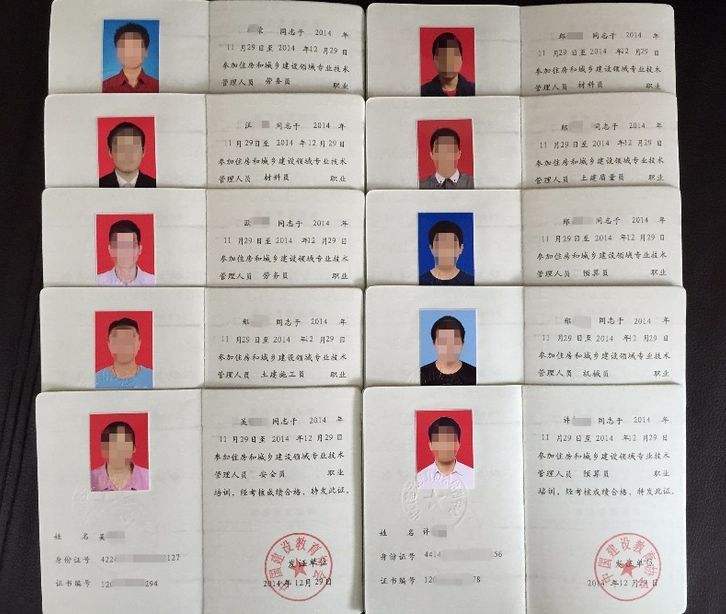 同志于 2014 年
11 月29日至 2014 年12 月29日
参加住房和城乡建设领域专业技术
管理人员 劳务员 职业
郑 同志于 2014 年
11 月29日至 2014 年12月29日
参加住房和城乡建设领域专业技术
管理人员 材料员 职业
汪 同志于 2014 年
11 月29日至 2014 年12月29日
参加住房和城乡建设领域专业技术
管理人员 材料员 职业
郑 同志于 2014 年
11 月29日至 2014 年12月29日
参加住房和城乡建设领域专业技术
管理人员 土建质量员 职业
同志于 2014 年
11 月29日至 2014 年12 月29日
参加住房和城乡建设领域专业技术
管理人员 劳务员 职业
郑 同志于 2014 年
11 月29日至 2014 年12月29日
参加住房和城乡建设领域专业技术
管理人员 预算员 职业
郑 同志于 2014 年
11 月29日至 2014 年12 月29日
参加住房和城乡建设领域专业技术
管理人员 土建施工员 职业
郑 同志于 2014 年
11 月29日至 2014 年12月29日
参加住房和城乡建设领域专业技术
管理人员 机械员 职业
吴 同志于 2014 年
11 月29日至 2014 年12月29日
参加住房和城乡建设领域专业技术
管理人员 安全员 职业
培训，经考核成绩合格，特发此证。
姓 名 吴
身份证号 422 127
证书编号 120 294
中国建设教育协会
发证单位
2014 年12月29日
许 同志于 2014 年
11 月29日至 2014 年12月29日
参加住房和城乡建设领域专业技术
管理人员 预算员 职业
培训，经考核成绩合格，特发此证。
姓 名 许
身份证号 441 56
证书编号 120 78
中国建设教育协会
发证单位
2014 年12月29日